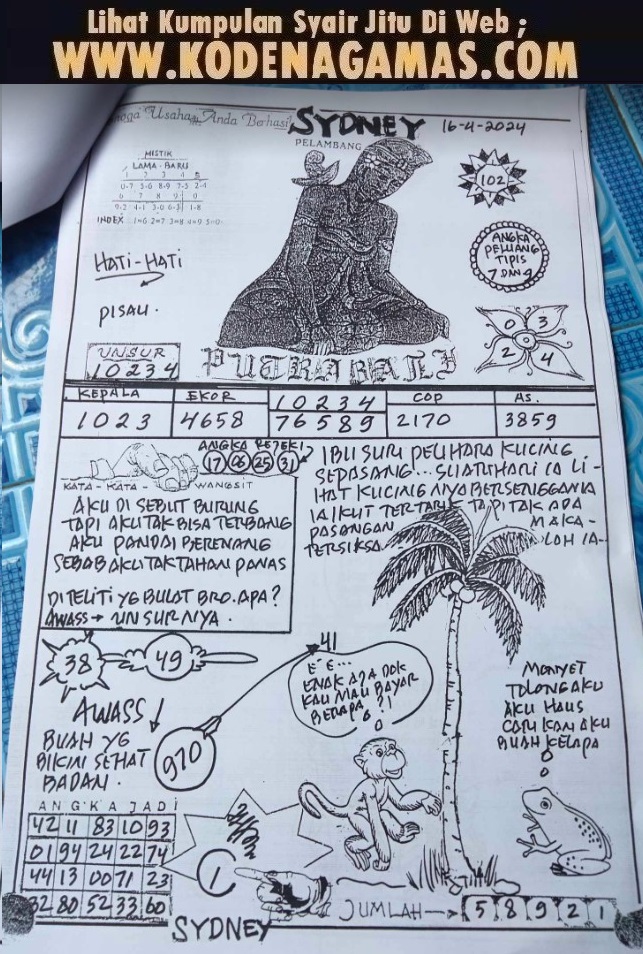 Lihat Kumpulan Syair Jitu Di Web ;
WWW.KODENAGAMAS.COM
Usaha Anda Berhasil
SYDNEY
16-4-2024
PELAMBANG
MISTIK
LAMA - BARU
1 2 3 4 5
0-7 5-6 8-9 7-5 2-4
6 7 8 9 0
INDEX
102
ANGKA
PELUANG
TIPIS
7 DAN 4
HATI-HATI
PISAU.
0 3
2 4
UNSUR
10234
PUTRA BALI
KEPALA EKOR 10234 COP AS.
1023 4658 76589 2170 3859
ANGKA REJEKI
17 06 25 31
KATA - KATA - WANGSIT
AKU DI SEBUT BURUNG
TAPI AKU TAK BISA TERBANG
AKU PANDAI BERENANG
SEBAB AKU TAK TAHAN PANAS
DI TELITI YG BULAT BRO. APA?
AWASS → UNSURNYA.
IBU SURI PELIHARA KUCING
SEPASANG... SUATU HARI IA LI-
HAT KUCING NIYA BERSENGGAMA
IA IKUT TERTARIK TAPI TAK ADA
PASANGAN MAKA-
TERSIKSA LOH IA-
38 49
41
E E...
ENAK AJA DOK
KAU MAU BAYAR
BERAPA ?!
AWASS!
BUAH YG
BIKIN SEHAT
BADAN.
970
MONYET
TOLONG AKU
AKU HAUS
CARI KAN AKU
BUAH KELAPA
ANGKA JADI
42 11 83 10 93
01 94 24 22 74
44 13 00 71 23
32 80 52 33 60
1
JUMLAH → 5 8 9 2 1
SYDNEY